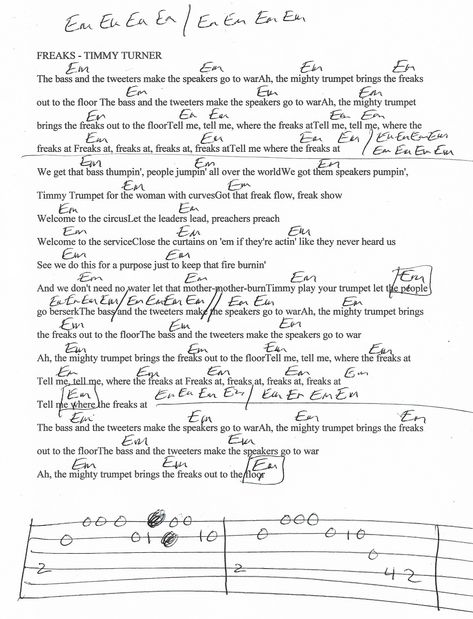 Em Em Em Em / Em Em Em Em
FREAKS - TIMMY TURNER
Em Em Em Em
The bass and the tweeters make the speakers go to warAh, the mighty trumpet brings the freaks
Em Em Em
out to the floor The bass and the tweeters make the speakers go to warAh, the mighty trumpet
Em Em Em Em Em
brings the freaks out to the floorTell me, tell me, where the freaks atTell me, tell me, where the
Em Em Em Em / Em Em Em Em
freaks at Freaks at, freaks at, freaks at, freaks atTell me where the freaks at Em Em Em Em
Em Em Em
We get that bass thumpin', people jumpin' all over the worldWe got them speakers pumpin',
Em Em
Timmy Trumpet for the woman with curvesGot that freak flow, freak show
Em Em
Welcome to the circusLet the leaders lead, preachers preach
Em Em Em
Welcome to the serviceClose the curtains on 'em if they're actin' like they never heard us
Em Em
See we do this for a purpose just to keep that fire burnin'
Em Em Em Em
And we don't need no water let that mother-mother-burnTimmy play your trumpet let the people
Em Em Em Em / Em Em Em Em // Em Em
go berserkThe bass and the tweeters make the speakers go to warAh, the mighty trumpet brings
Em Em Em
the freaks out to the floorThe bass and the tweeters make the speakers go to war
Em Em Em Em
Ah, the mighty trumpet brings the freaks out to the floorTell me, tell me, where the freaks at
Em Em Em Em Em
Tell me, tell me, where the freaks at Freaks at, freaks at, freaks at, freaks at
Em Em Em Em Em / Em Em Em Em
Tell me where the freaks at
Em Em Em Em
The bass and the tweeters make the speakers go to warAh, the mighty trumpet brings the freaks
Em Em
out to the floorThe bass and the tweeters make the speakers go to war
Em Em Em
Ah, the mighty trumpet brings the freaks out to the floor
0 0 0 0 0 0 0 0
0 0 1 1 0 0 0 1 0
0
2 2 4 2